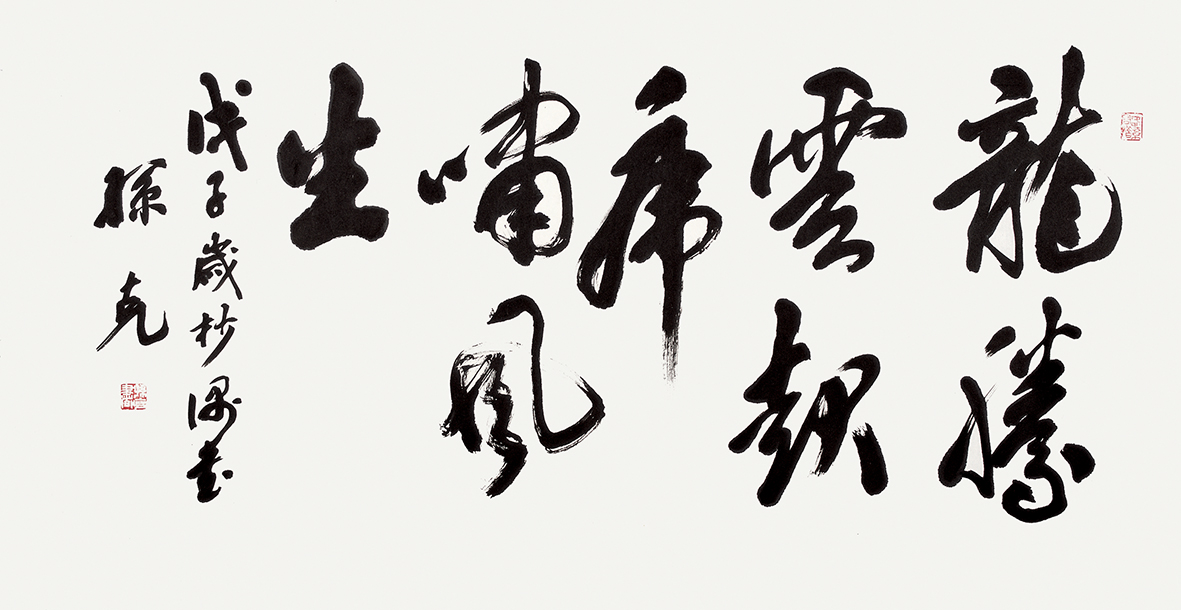 龍騰
雲起
虎
嘯風
生
戊子歲杪偶書
孫克